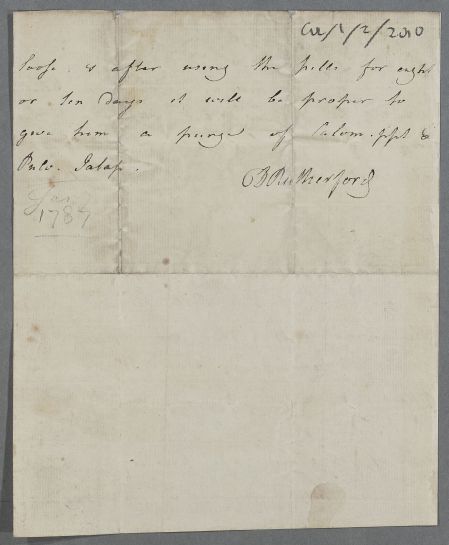 CUL/1/2/2010
loose. & after using the pills for eight
or ten days it will be proper to
give him a purge of Calom. ppt &
Pulv. Jalap.
D Rutherford
Jan
1787